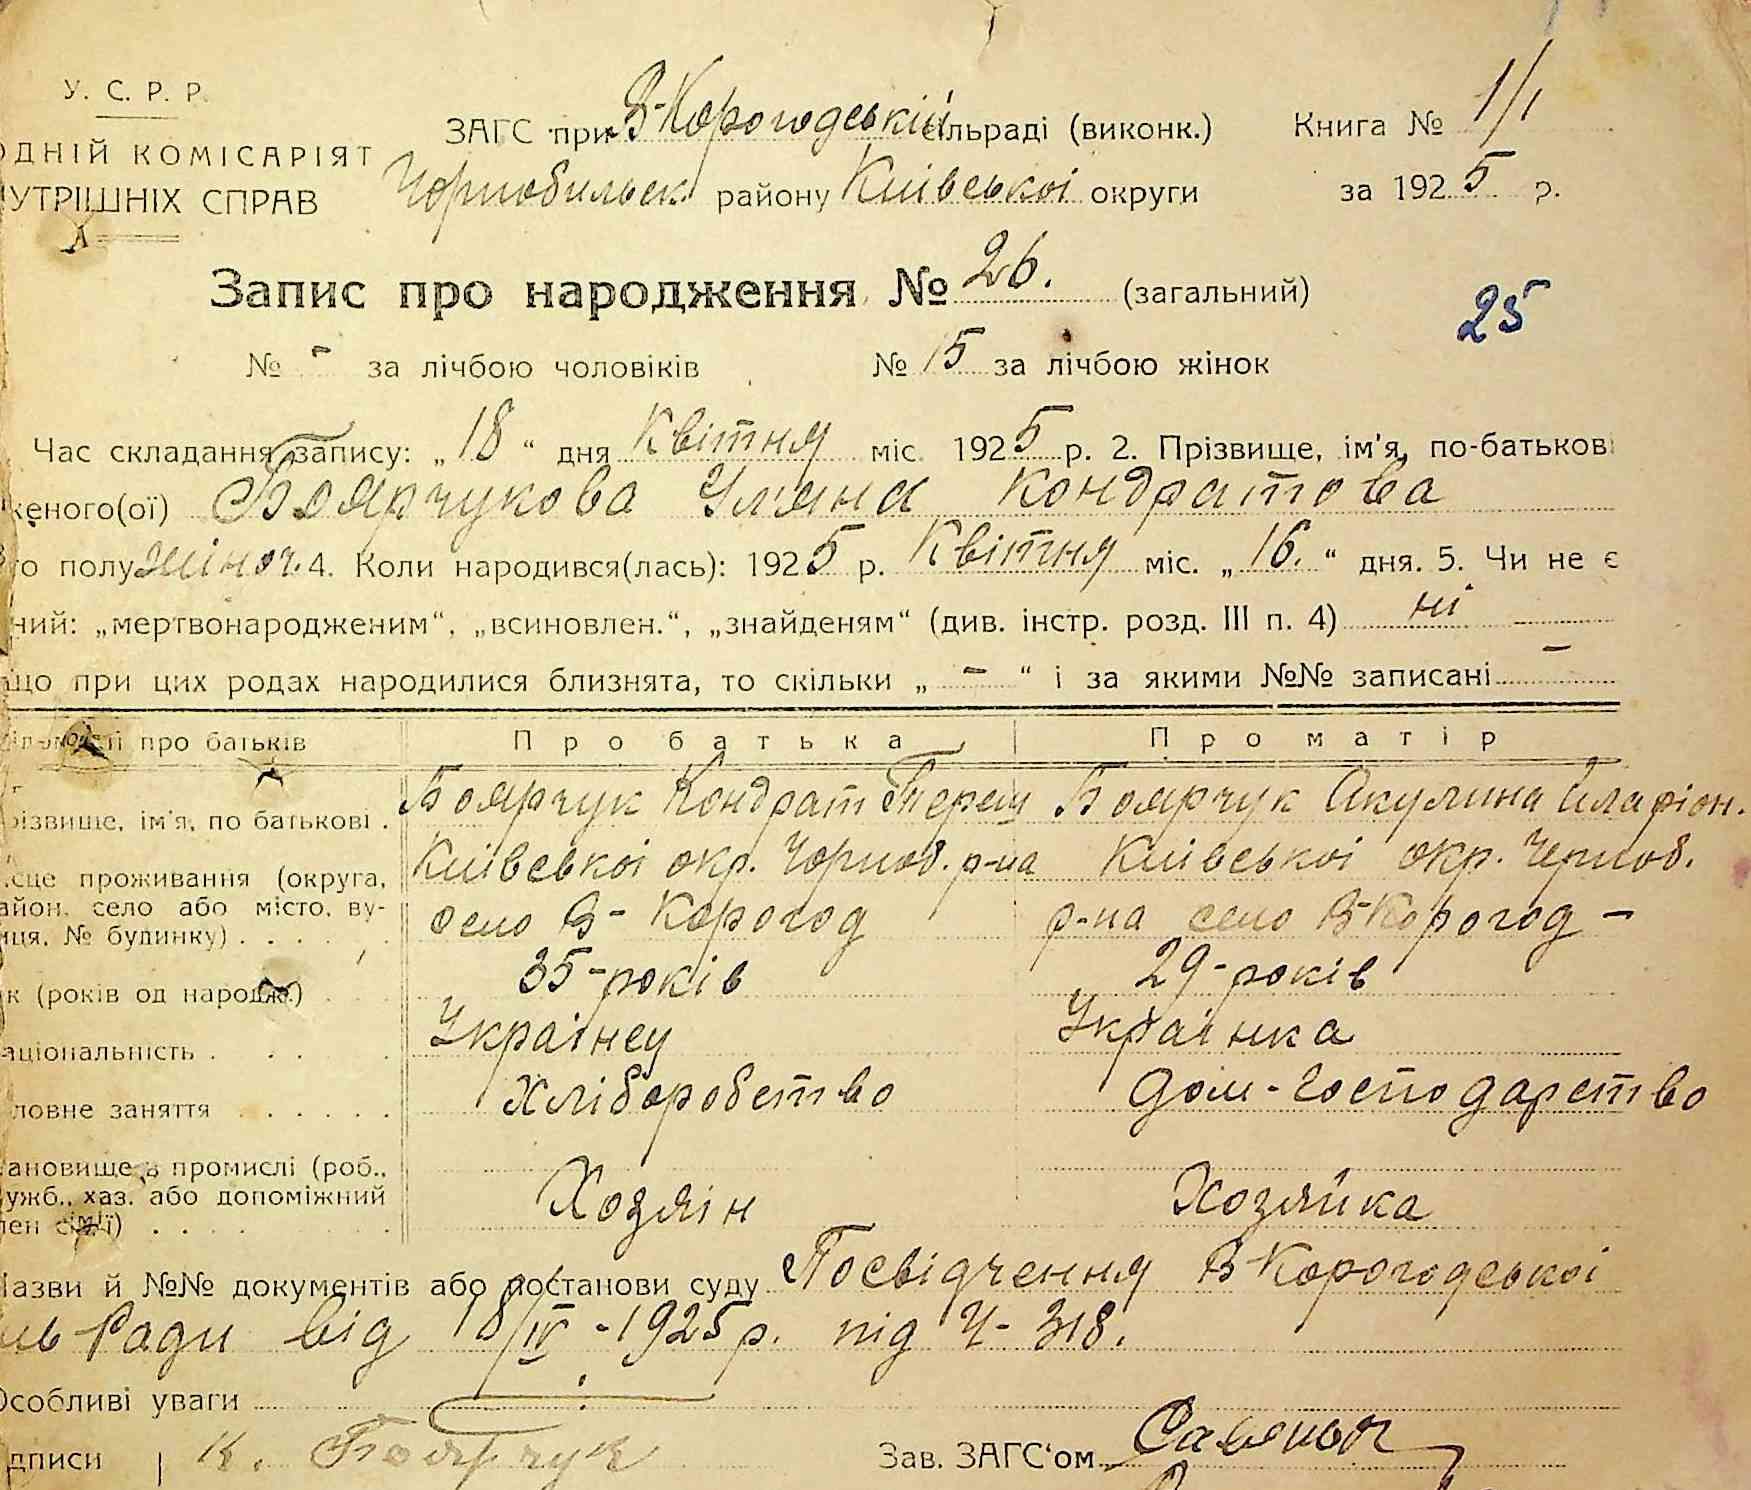 У. С. Р. Р.
ОДНІЙ КОМІСАРІЯТ
НУТРІШНІХ СПРАВ
ЗАГС при В-Корогодській сільраді (виконк.) Книга № 1/1
Чорнобильск. району Київської округи за 1925 р.
Запис про народження № 26. (загальний)
25
№ - за лічбою чоловіків № 15 за лічбою жінок
Час складання запису: „18“ дня Квітня міс. 1925 р. 2. Прізвище, ім'я, по-батькові
женого(ої) Боярчукова Уляна Кондратова
го полу жіноч. 4. Коли народився(лась): 1925 р. Квітня міс. „16.“ дня. 5. Чи не є
ний: „мертвонародженим“, „всиновлен.“, „знайденям“ (див. інстр. розд. III п. 4) ні
що при цих родах народилися близнята, то скільки „ - “ і за якими №№ записані -
про батьків Про батька Про матір
різвище, ім'я, по батькові . Боярчук Кондрат Боярчук Акулина Іларіон.
сце проживання (округа, Київської окр. Чорноб. р-на Київської окр. Черноб.
айон, село або місто, ву-
иця, № будинку) . . . . . село В-Корогод р-на село В-Корогод -
к (років од народж.) 35-років 29-років
аціональність . . . . Українец Українка
ловне заняття . . . . . . Хліборобство Дом-Господарство
ановище в промислі (роб.,
ужб., хаз. або допоміжний
лен сім'ї) . . . . Хозяін Хозяйка
Назви й №№ документів або постанови суду Посвідчення В-Корогодської
ль Ради від 18/IV - 1925 р. під Ч- 318.
Особливі уваги
дписи К. Боярчук Зав. ЗАГС'ом